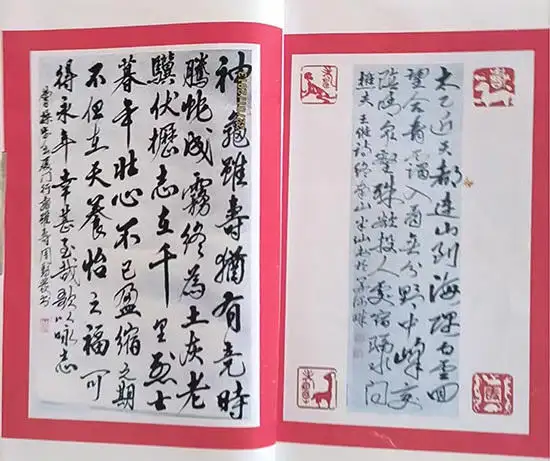 太乙近天都連山到海隅白雲回
望合青靄入看無分野中峰变
陰晴衆壑殊欲投人處宿隔水问
樵夫 王维诗终南山
神龜雖壽猶有竟時
騰蛇成霧終為土灰老
驥伏櫪志在千里烈士
暮年壯心不已盈縮之期
不但在天養怡之福可
得永年幸甚至哉歌以咏志
曹操步出夏门行龜雖寿周